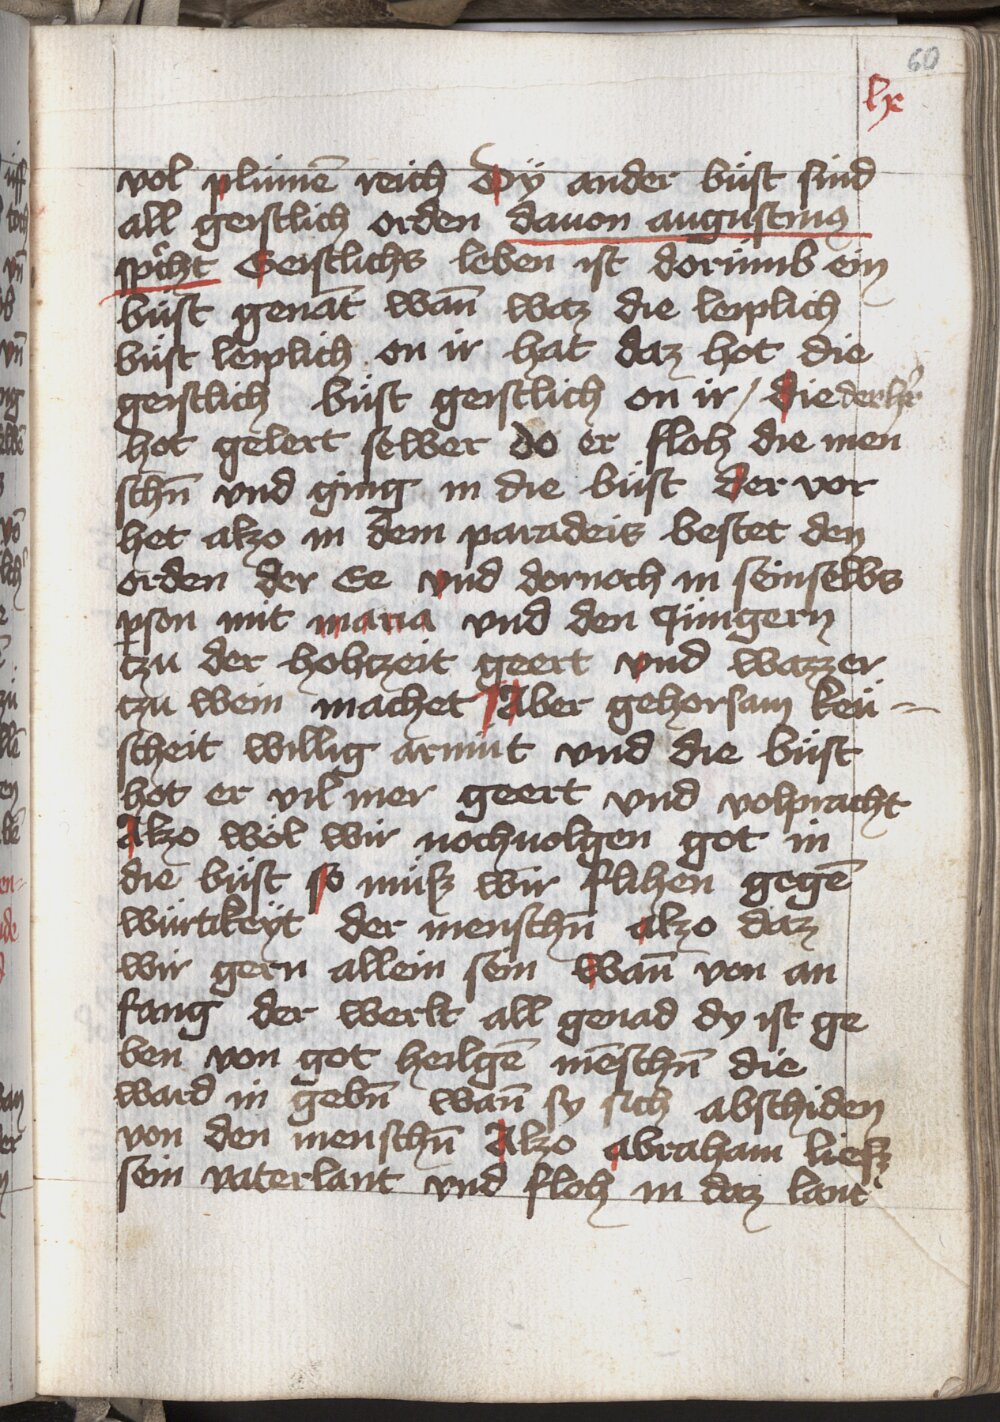 60
lx
vol plümē reich Dÿ ander büst sind
all geistlich orden dauon augustinus
spͦcht Geistlichs leben ist dorümb ein
büst genāt wan̄ waz die leiplich
büst leiplich on ir hat daz hot die
geistlich büst geistlich on ir / Die der hr̄
hot gelert selber do er floh die men
schn̄ vnd ging in die büst Der vor
het alzo in dem paradeis bestet den
orden der Ee vnd dornoch in seinselbs
ꝑson mit maria vnd den Jüngern
tzu der hohtzeit geert vnd wazzer
tzu wein machet Aber gehorsam keü-
scheit willig armüt vnd die büst
hot er vil mer geert vnd volpracht
Alzo wöl wir nochuolgen got in
die büst so müsz wir flihen gegē
würtikeÿt der menschn̄ alzo daz
wir gern allein sein Wan̄ von an
fang der werlt all genad dy ist ge
ben von got heilgē mēschn̄ die
ward in gebn̄ wan̄ sy sich abschiden
von den menschn̄ Alzo abraham liesz
sein vaterlant vnd floh in daz lant